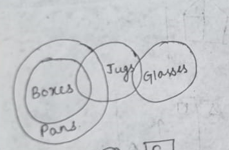 Jugs
Glasses
Boxes
Pans